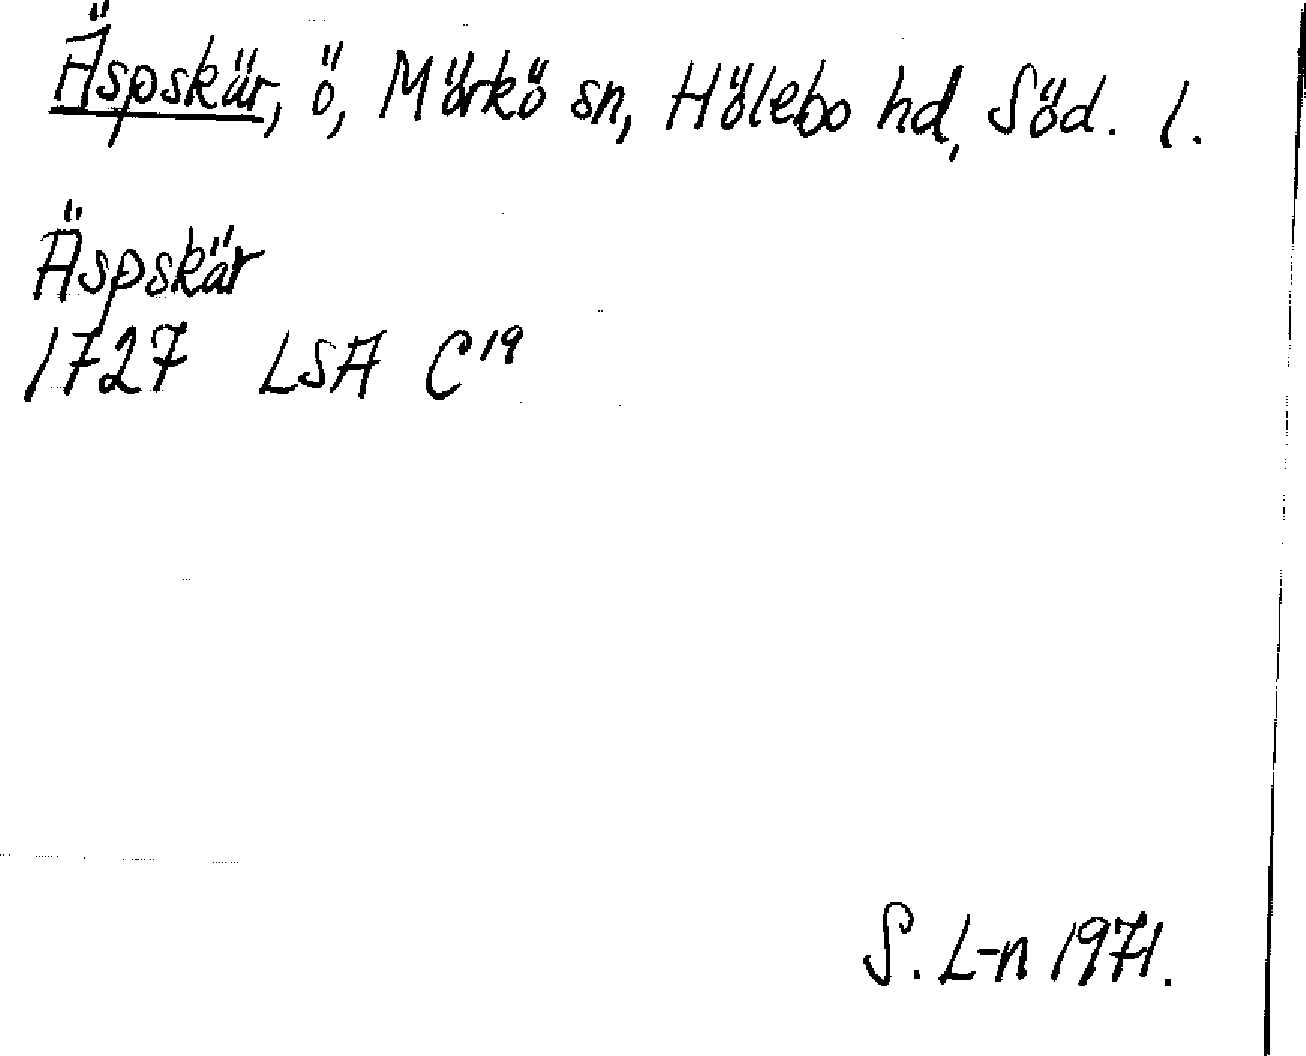 Äspskär, ö, Mörkö sn, Hölebo hd, Söd. l.
Äspskär
1727 LSA C¹⁹
S. L-n 1971.